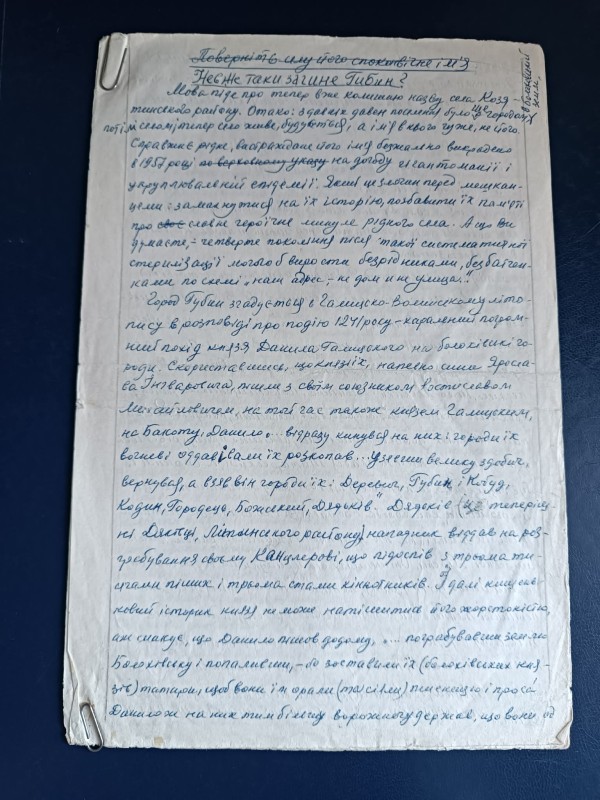 Поверніть йому його споконвічне ім'я
Невже таки загине Губин?
в болохівській землі
Мова піде про тепер вже колишню назву села Козя-
тинського району. Отако: здавніх давен поселення було ще городом,
потім селом, і тепер село живе, будується, а ім'я в нього чуже, не його.
Справжнє рідне, вистраждане його ім'я безжально викрадено
в 1957 році по верховному указу на догоду гігантоманії і
укрупнювальній епідемії. Який це злочин перед мешкан-
цями: замахнутися на їх історію, позбавити їх пам'яті
про своє славне героїчне минуле рідного села. А що Ви
думаєте, – четверте покоління після такої систематичної
стерилізації могло б вирости безрідниками, безбатчен-
ками по схемі „наш адрес – не дом и не улица..."
Город Губин згадується в Галицько-Волинському літо-
пису в розповіді про подію 1241 року – каральний погром-
ний похід князя Данила Галицького на болохівські го-
роди. Скориставшись, що князі їх, напевно сини Яросла-
ва Інгваровича, пішли з своїм союзником Ростиславом
Михайловичем, на той час також князем Галицьким,
на Бакоту, Данило „... відразу кинувся на них і городи їх
вогневі оддав і вали їх розкопав... узявши велику здобич,
вернувся, а взяв він городи їх: Деревич, Губин і Кобуд,
Кодин, Городець, Божський, Дядьків". Дядьків (це теперіш-
ні Дяківці, Літинського району) нападник віддав на роз-
грабування своєму Канцлерові, що підоспів з трьома ти-
сячами піших і трьома стами кіннотників. І далі
новий історик князя не може натішитися його жорстокістю,
аж смакує, що Данило пішов додому, „... пограбувавши землю
Болохівську і попаливши, – бо зоставили їх (болохівських кня-
зів) татари, щоб вони їм орали (та сіяли) пшеницю і проса
Данило ж на них тим більшу ворожнечу держав, що вони од